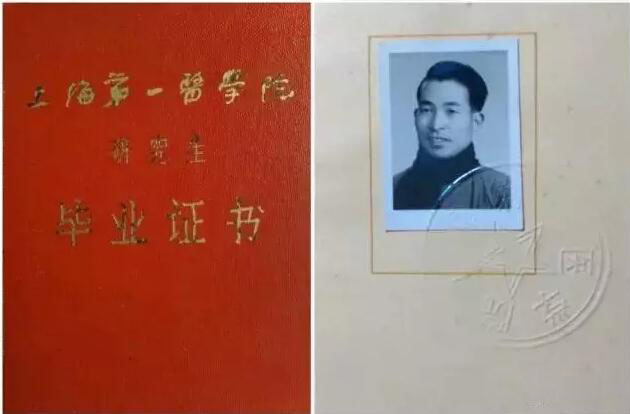 上海第一醫学院
研究生
毕业证书